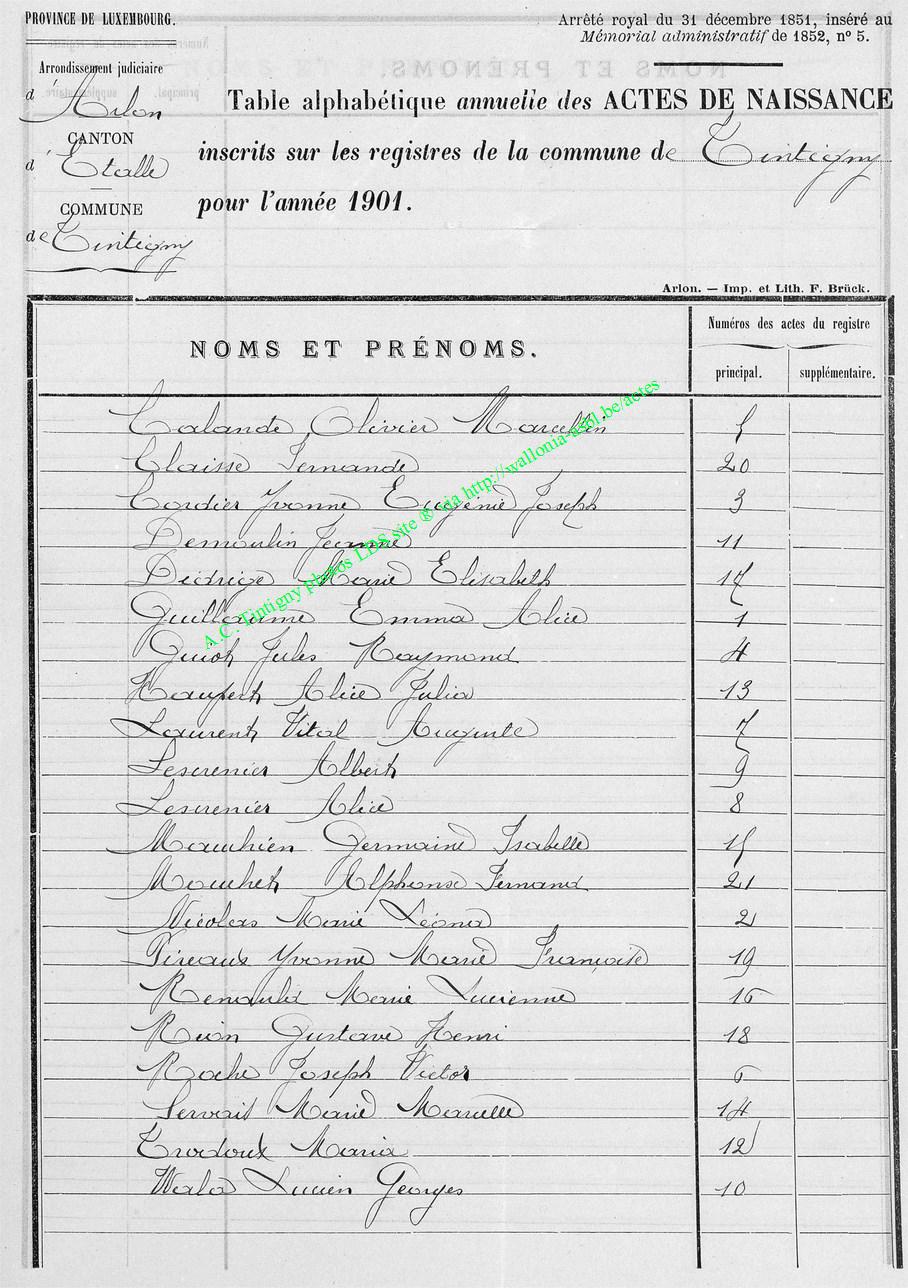 PROVINCE DE LUXEMBOURG.
Arrêté royal du 31 décembre 1851, inséré au
Mémorial administratif de 1852, nº 5.
Arrondissement judiciaire
d'Arlon
CANTON
d'Etalle
COMMUNE
de Tintigny
Table alphabétique annuelle des ACTES DE NAISSANCE
inscrits sur les registres de la commune de Tintigny
pour l'année 1901.
Arlon. — Imp. et Lith. F. Brück.
NOMS ET PRÉNOMS.
Numéros des actes du registre
principal. supplémentaire.
Calande Olivier Marcellin 5
Claisse Fernande 20
Cordier Yvonne Eugénie Joseph 3
Demoulin Jeanne 11
Marie Elisabeth 17
Guillaume Emma Alice 1
Guiot Jules Raymond 4
Haupert Alice Julia 13
Laurent Vital Auguste 7
Lescrenier Albert 9
Lescrenier Alice 8
Germaine Isabelle 15
Mouchet Alphonse Fernand 21
Nicolas Marie Léona 2
Pireaux Yvonne Marie Françoise 19
Renauld Marie Lucienne 16
Rion Gustave Henri 18
Roche Joseph Victor 6
Servais Marie Marcelle 14
Maria 12
Lucien Georges 10
A.C. Tintigny photos LDS site ® via http://wallonia-asbl.be/actes